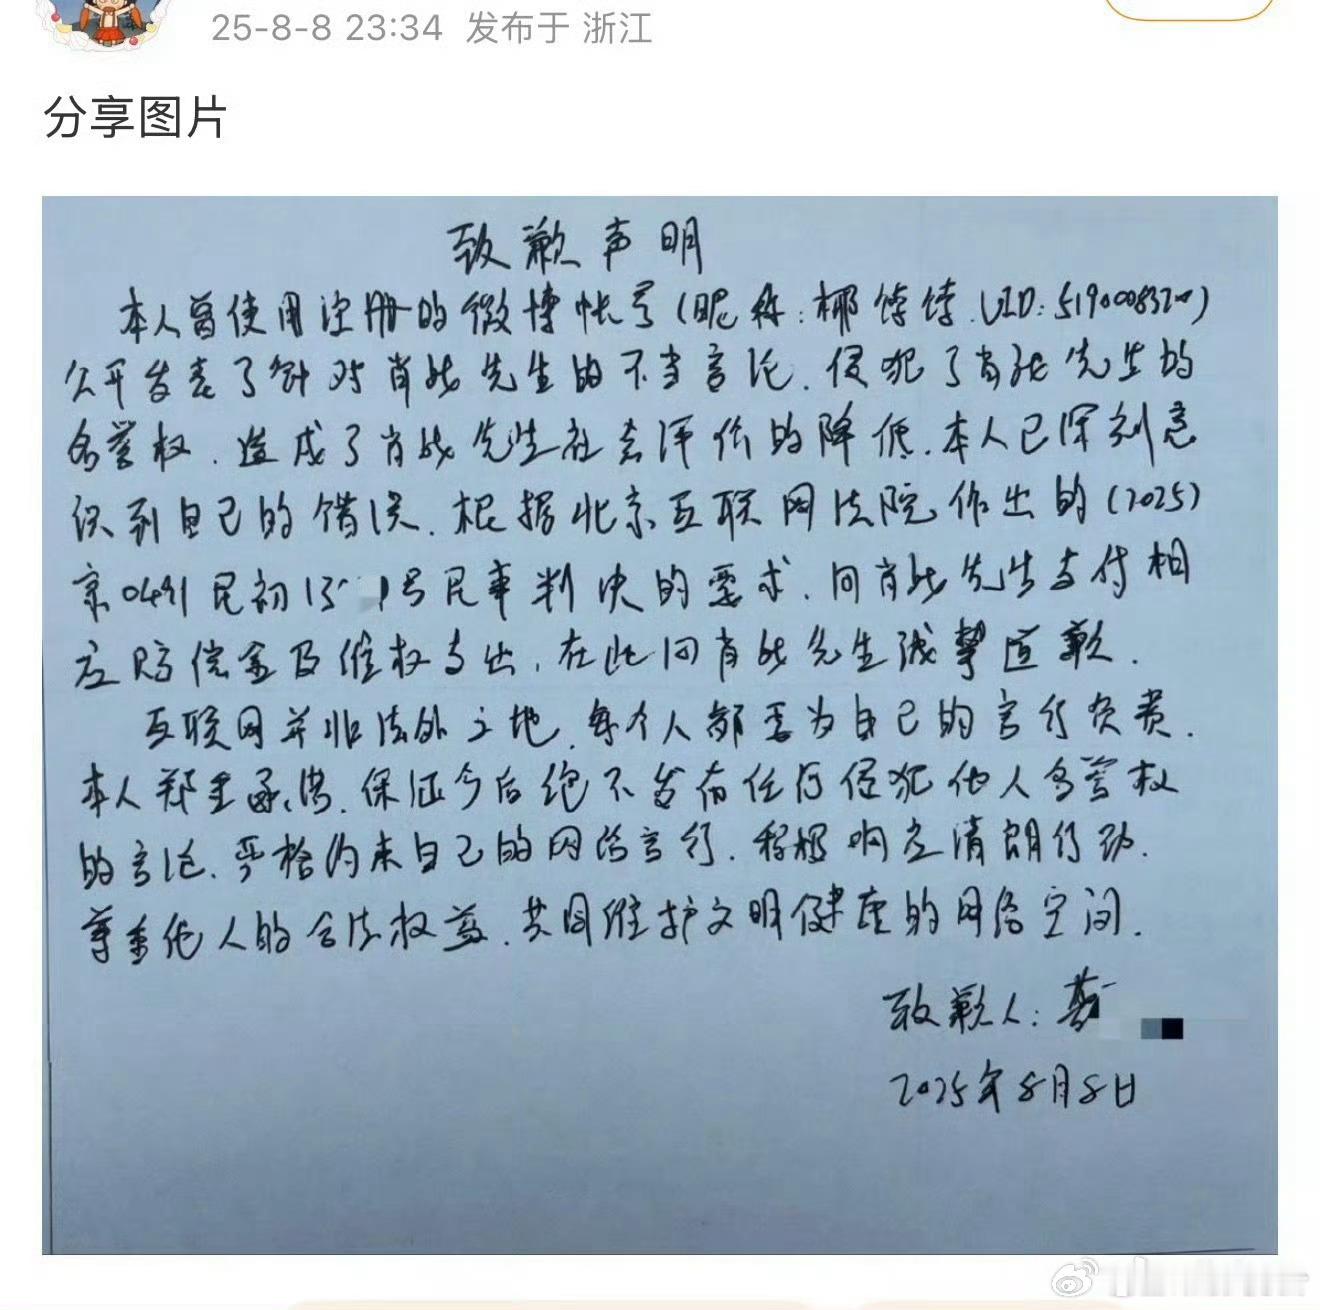 25-8-8 23:34 发布于 浙江
分享图片
致歉声明
本人曾使用注册的微博帐号(昵称:椰饽饽.UID:5190008320)
公开发表了针对肖战先生的不当言论,侵犯了肖战先生的
名誉权,造成了肖战先生社会评价的降低.本人已深刻意
识到自己的错误.根据北京互联网法院作出的(2025)
京0491民初13 号民事判决的要求,向肖战先生支付相
应赔偿金及维权支出,在此向肖战先生诚挚道歉.
互联网并非法外之地,每个人都要为自己的言行负责.
本人郑重承诺,保证今后绝不发布任何侵犯他人名誉权
的言论,严格约束自己的网络言行,积极响应清朗行动.
尊重他人的合法权益,共同维护文明健康的网络空间.
致歉人:
2025年8月8日